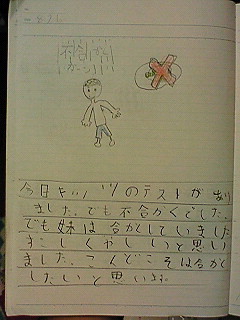 不合かく
ガーン
今日キッズのテストがあり
ました。でも不合かくでした。
でも妹は合かくしていました
すこしくやしいと思い
ました。こんどこそは合かく
したいと思います。